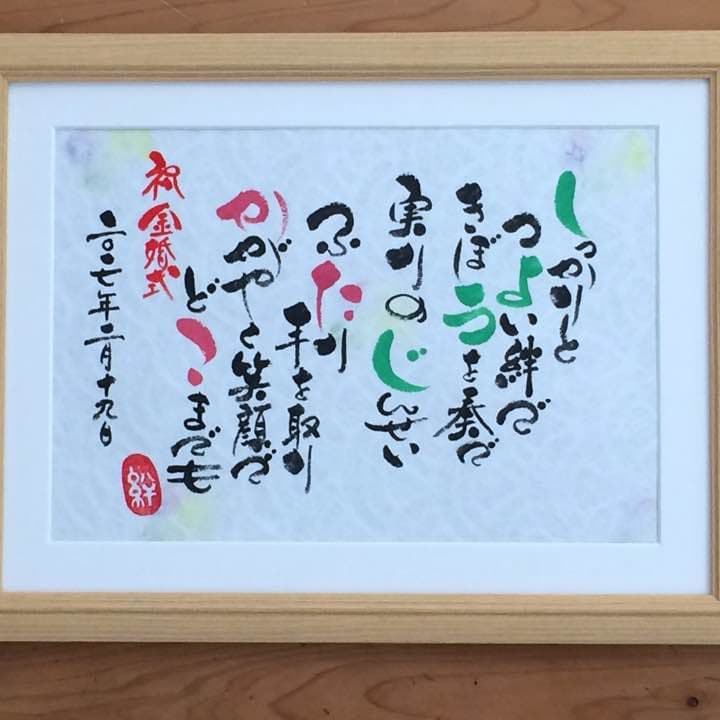 しっかりと
つよい絆で
きぼうを奏で
実りのじんせい
ふたり
手を取り
かがやく笑顔で
どこまでも
祝金婚式
二〇一七年二月十九日
絆